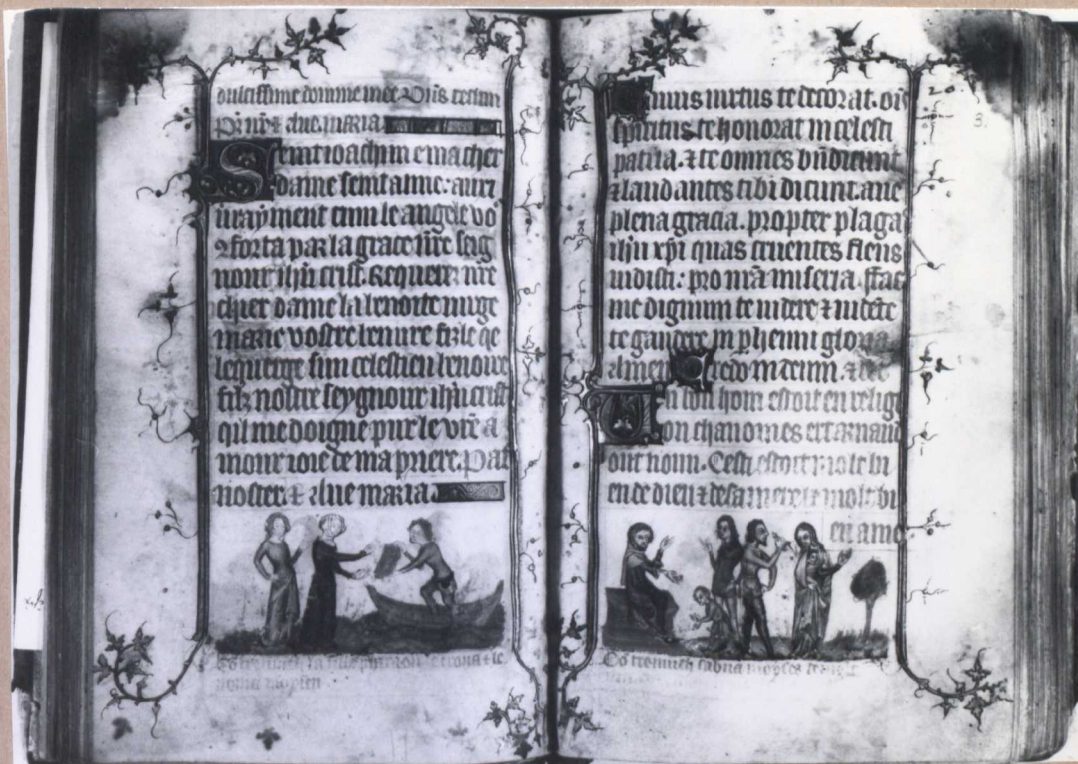 dulcissime domine mee
Pr nr & aue maria
Seint ioachim e ma cher
dame seint anne: auri
urayment cum le angele vo
9forta par la grace nre seig
nour ihu crist. Requerez nre
cher dame la benoite uirge
marie vostre beniure fizle qe
le quer ge sun celestien benoure
filz nostre seygnour ihu crist
qil me doigne pur le vre a
mour ioie de ma priere. Pat
noster. & Aue maria.
la fille pharaon trona & le
moysen
mnis uirtus te decorat. ois
spiritus te honorat in celesti
patria. & te omnes bndicunt
& laudantes tibi dicunt. aue
plena gracia. propter plaga
ihu xpi quas cruentes flens
uidisti: pro mea miseria. ffac
me dignum te uidere & uidete
te gaudere in phenni gloria
Amen Credo in deum. &
Un bon hom estoit en religi
on chanoines ert arnaud
out noun. Cesti estoit molt bi
en de dieu & de sa mere & molt bi
en ame
moyses
20
3.